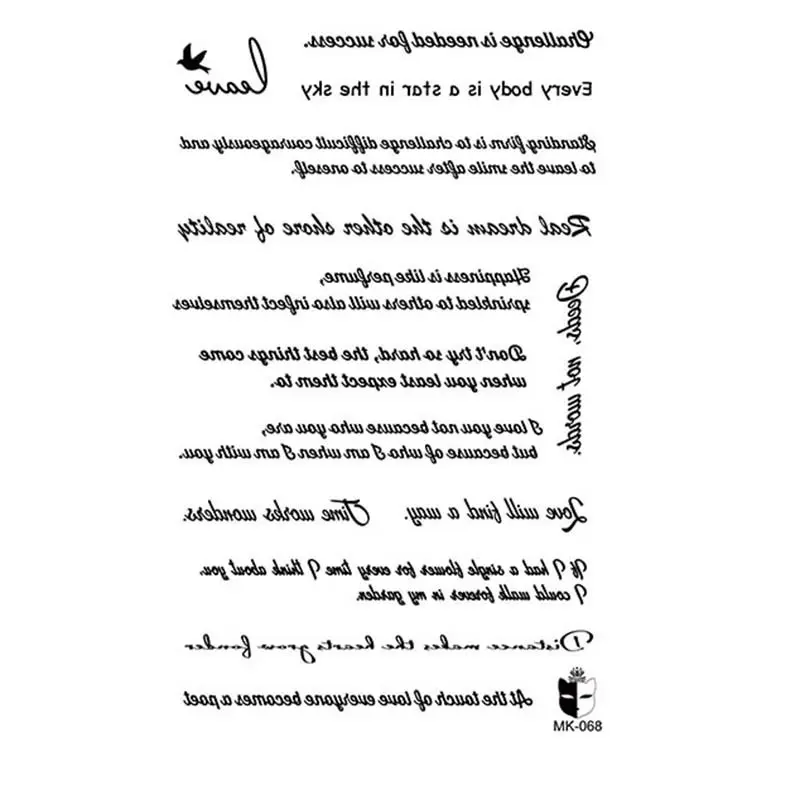 Challenge is needed for success.
leave
Every body is a star in the sky
Standing firm is to challenge difficult courageously and
to leave the smile after success to oneself.
Real dream is the other shore of reality
Happiness is like perfume,
sprinkled to others will also infect themselves
Deeds, not words.
Don't try so hard, the best things come
when you least expect them to.
I love you not because who you are,
but because of who I am when I am with you.
Love will find a way.
Time works wonders.
If I had a single flower for every time I think about you,
I could walk forever in my garden.
Distance makes the hearts grow fonder
At the touch of love everyone becomes a poet
MK-068